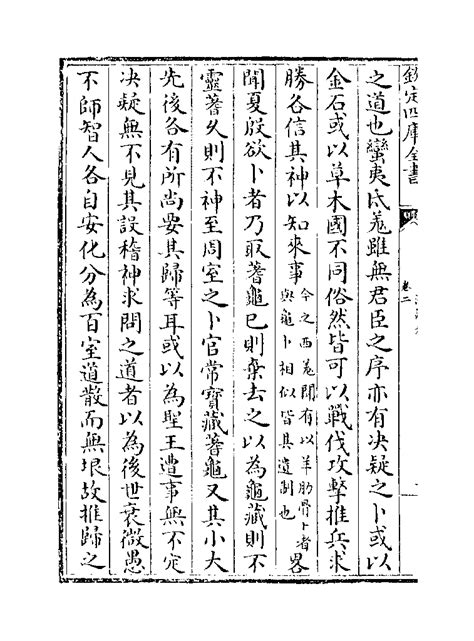 欽定四庫全書
卷二
之道也蠻夷氐羌雖無君臣之序亦有决疑之卜或以
金石或以草木國不同俗然皆可以戰伐攻擊推兵求
勝各信其神以知來事今之西羌聞有以羊肋骨卜者與龜卜相似皆其遺制也畧
聞夏殷欲卜者乃取蓍龜已則棄去之以為龜藏則不
靈蓍久則不神至周室之卜官常寳藏蓍龜又其小大
先後各有所尚要其歸等耳或以為聖王遭事無不定
决疑無不見其設稽神求問之道者以為後世衰微愚
不師智人各自安化分為百室道散而無垠故推歸之